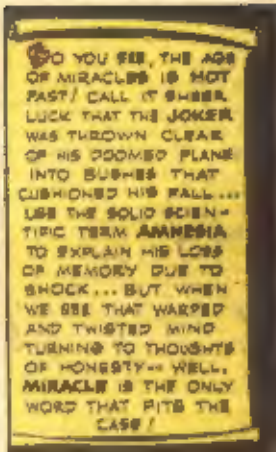 SO YOU SEE, THE AGE
OF MIRACLES IS NOT
PAST! CALL IT SHEER
LUCK THAT THE JOKER
WAS THROWN CLEAR
OF HIS DOOMED PLANE
INTO BUSHES THAT
CUSHIONED HIS FALL...
USE THE SOLID SCIEN-
TIFIC TERM AMNESIA
TO EXPLAIN HIS LOSS
OF MEMORY DUE TO
SHOCK... BUT WHEN
WE SEE THAT WARPED
AND TWISTED MIND
TURNING TO THOUGHTS
OF HONESTY-- WELL,
MIRACLE IS THE ONLY
WORD THAT FITS THE
CASE!